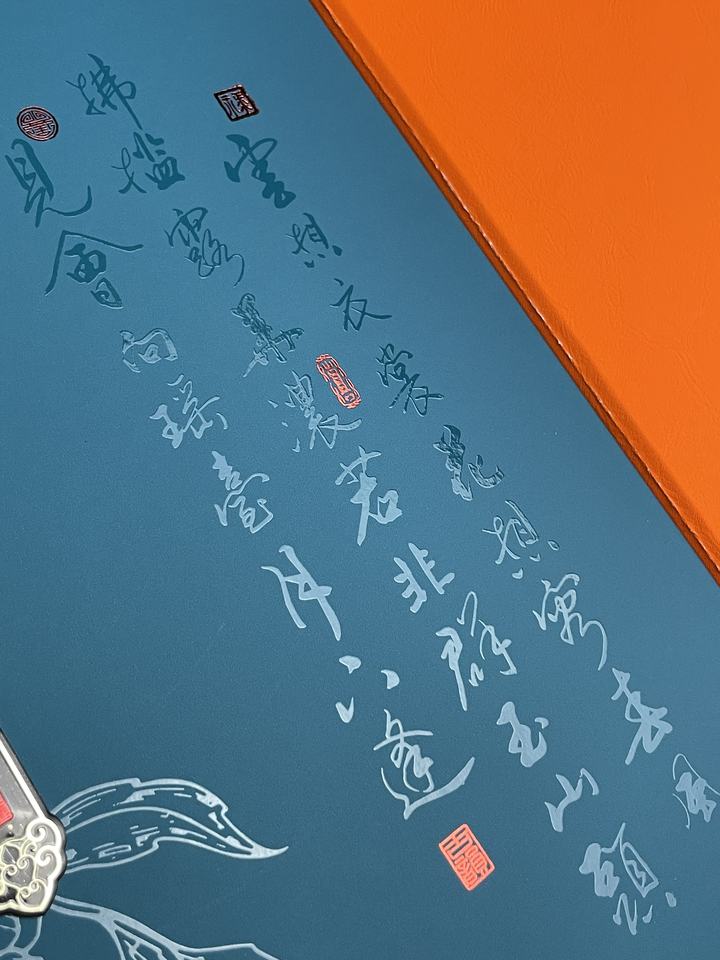 雲想衣裳花想容春風
拂檻露華濃若非群玉山頭
見會向瑤臺月下逢